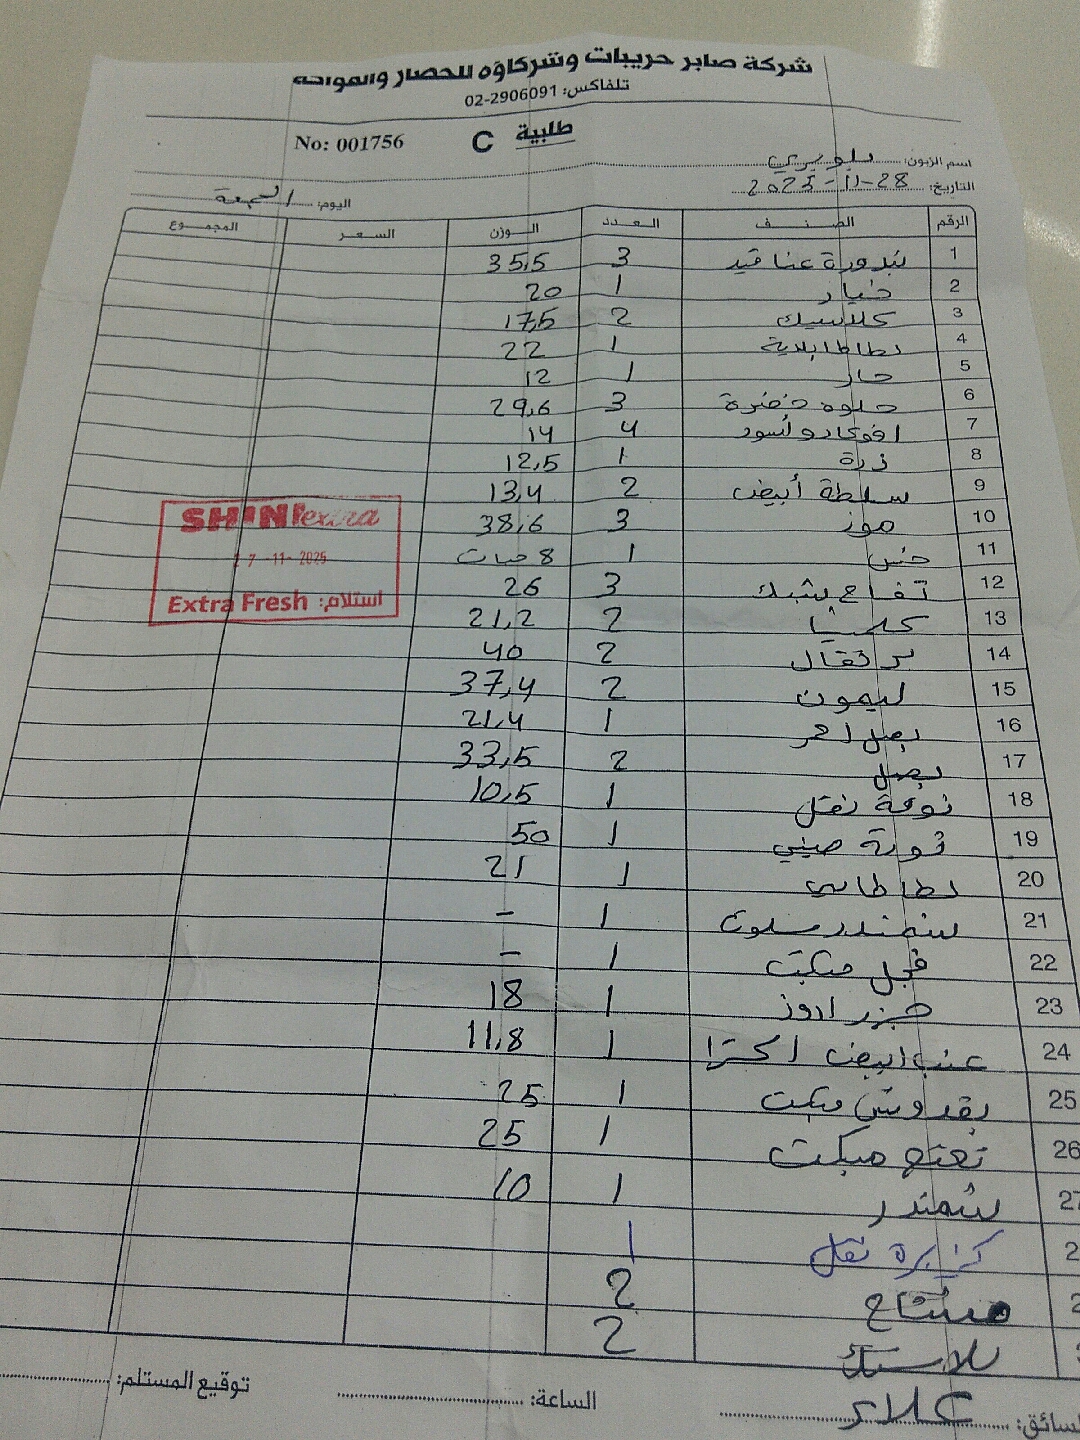 شركة صابر حريبات وشركاؤه للخضار والفواكه
تلفاكس: 02-2906091
طلبية C No: 001756
اسم الزبون:
التاريخ: 28-11-2025
اليوم: الجمعة
الرقم الصنف العدد الوزن السعر المجموع
1 بندورة عناقيد 3 35,5
2 خيار 1 20
3 كلاسيك 2 17,5
4 بطاطا بلادية 1 22
5 حار 1 12
6 حلوه خضرة 3 29,6
7 افوكادو أسود 4 14
8 ذرة 1 12,5
9 سلطة أبيض 2 13,4
10 موز 3 38,6
11 خس 1 8 حبات
12 تفاح 3 26
13 2 21,2
14 برتقال 2 40
15 ليمون 2 37,4
16 بصل احمر 1 21,4
17 بصل 2 33,5
18 نقل 1 10,5
19 ثومة صيني 1 50
20 بطاطا 1 21
21 شمندر مسلوق 1 -
22 فجل مبكت 1 -
23 جزر 1 18
24 عنب ابيض اكسترا 1 11,8
25 بقدونس مبكت 1 25
26 نعنع مبكت 1 25
27 شمندر 1 10
2 كزبرة نقل 1
2 2
2
SHINI extra
17-11-2025
Extra Fresh استلام:
السائق: علاء
الساعة:
توقيع المستلم: